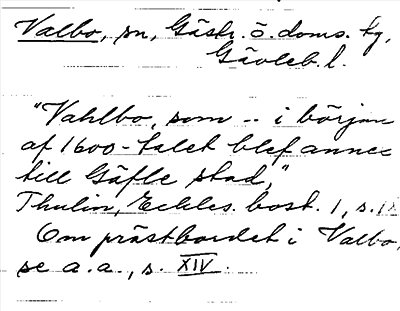 Valbo, sn, Gästr. ö. doms. tg,
Gävleb. l.
"Vahlbo, som -- i början
af 1600-talet blef annex
till Gäfle stad,"
Thulin, Eckles. bost. 1, s.
Om prästbordet i Valbo,
se a. a., s. XIV.